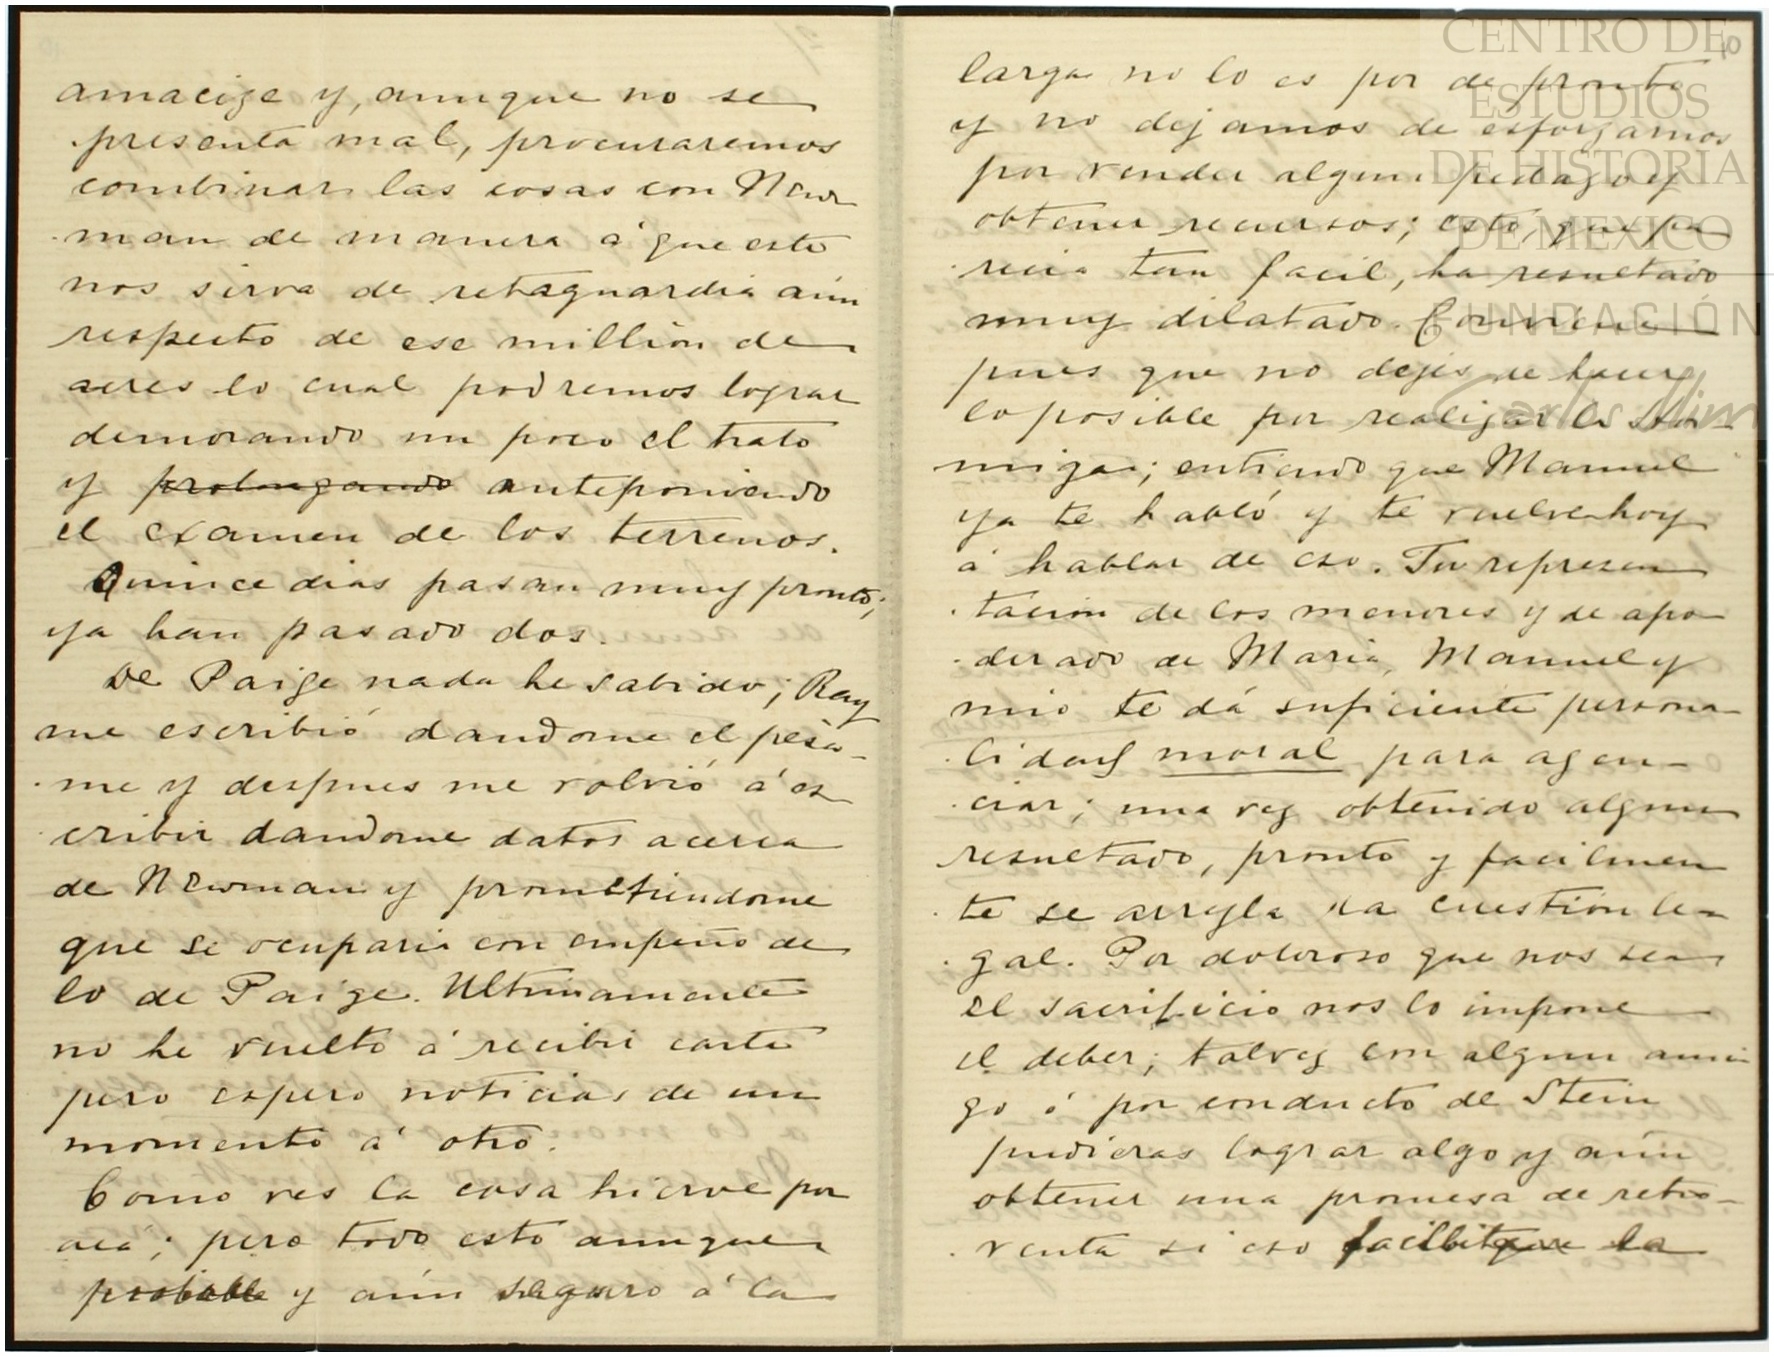 amacize y, aunque no se
presenta mal, procuraremos
combinar las cosas con New
man de manera á que este
nos sirva de retaguardia aún
respecto de ese millión de
acres lo cual podremos lograr
demorando un poco el trato
y prolongando anteponiendo
el examen de los terrenos.
Quince dias pasan muy pronto;
ya han pasado dos.
De Paige nada he sabido; Ray
me escribió dandome el pesa-
me y despues me volvió á es
cribir dandome datos acerca
de Newman y prometiendome
que se ocuparia con empeño de
lo de Paige. Ultimamente
no he vuelto á recibir carta
pero espero noticias de un
momento á otro.
Como ves la cosa hierve por
acá; pero todo esto aunque
probable y aún seguro á la
larga no lo es por de pronto
y no dejamos de esforzarnos
por vender algun pedazo y
obtener recursos; esto, que pa
recia tan facil, ha resultado
muy dilatado. Conviene
pues que no dejes de hacer
lo posible por realizar la Hor-
miga; entiendo que Manuel
ya te habló y te vuelve hoy
á hablar de eso. Tu represen
tación de los menores y de apo
derado de Maria, Manuel y
mio te dá suficiente persona
lidad moral para agen-
ciar; una vez obtenido algun
resultado, pronto y facilmen
te se arregla la cuestión le-
gal. Por doloroso que nos sea
el sacrificio nos lo impone
el deber; talvez con algun ami
go ó por conducto de Stein
pudieras lograr algo y aún
obtener una promesa de retro-
venta si eso facilitare la
10
CENTRO DE
ESTUDIOS
DE HISTORIA
DE MEXICO
FUNDACIÓN
Carlos Slim